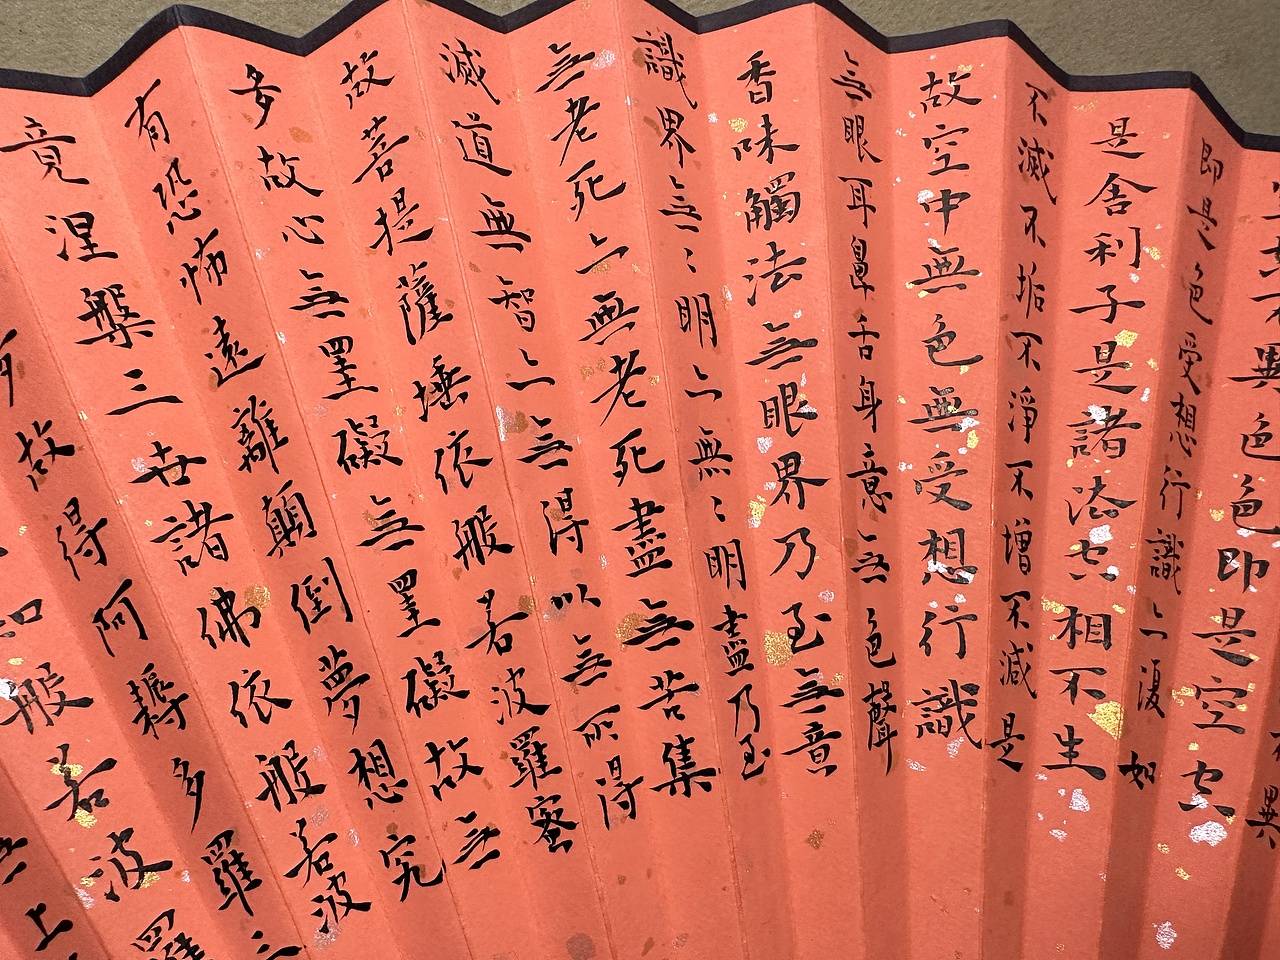 不異
不異色色即是空空
即是色受想行識亦復如
是舍利子是諸法空相不生
不滅不垢不淨不增不減是
故空中無色無受想行識
無眼耳鼻舌身意無色聲
香味觸法無眼界乃至無意
識界無〻明亦無〻明盡乃至
無老死亦無老死盡無苦集
滅道無智亦無得以無所得
故菩提薩埵依般若波羅蜜
多故心無罣礙無罣礙故無
有恐怖遠離顛倒夢想究
竟涅槃三世諸佛依般若波
多故得阿耨多羅三
知般若波羅
無上